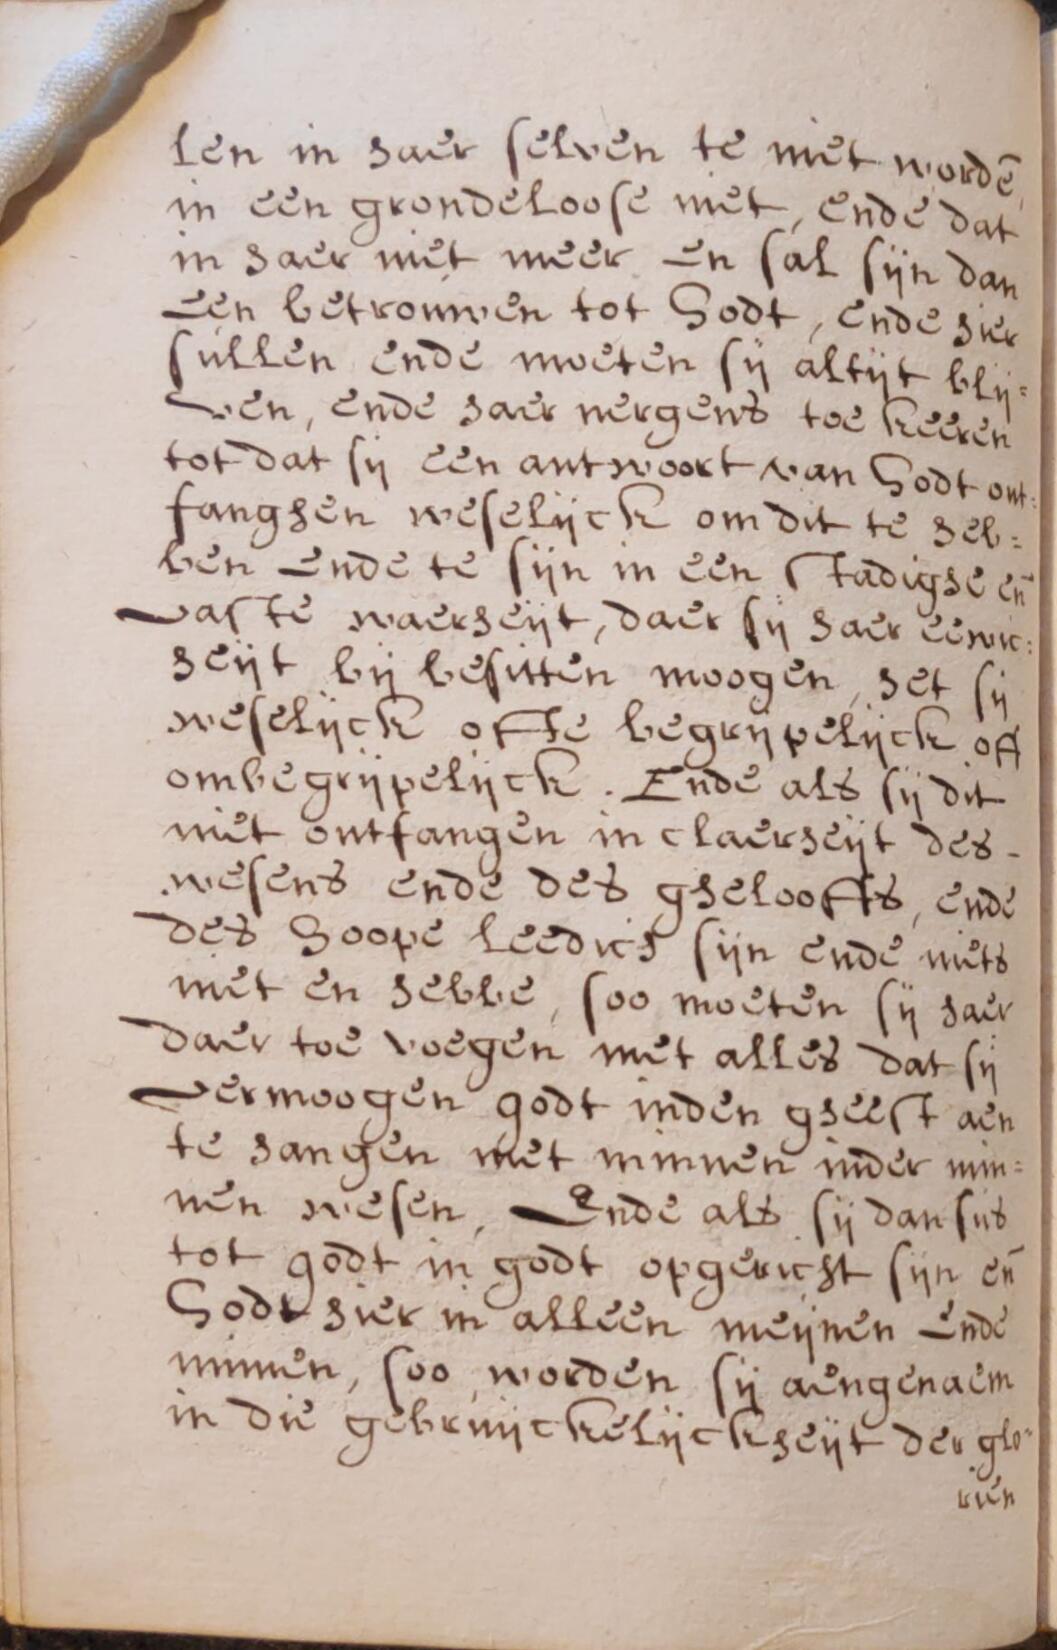 len in haer selven te niet wordē,
in een grondeloose niet, ende dat
in haer niet meer en sal sijn dan
een betrouwen tot Godt, ende hier
sullen ende moeten sij altijt blij=
ven, ende haer nergens toe keeren
tot dat sij een antwoort van Godt ont=
fanghen weselijck om dit te heb=
ben ende te sijn in een stadighe en̄
vaste waerheijt, daer sij haer eewic=
heijt bij besitten moogen, het sij
weselijck ofte begrijpelijck off
ombegrijpelijck. Ende als sij dit
niet ontfangen in claerheijt des -
wesens ende des gheloofts, ende
des hoope leedich sijn ende niets
niet en hebbe, soo moeten sij haer
daer toe voegen met alles dat sij
vermoogen godt inden gheest aen
te hangen met minnen inder min=
nen wesen, Ende als sij dan sus
tot godt in godt opgericht sijn en̄
Godt hier in alleen meijnen ende
minnen, soo worden sij aengenaem
in die gebruijckelijckheijt der glo=
rien